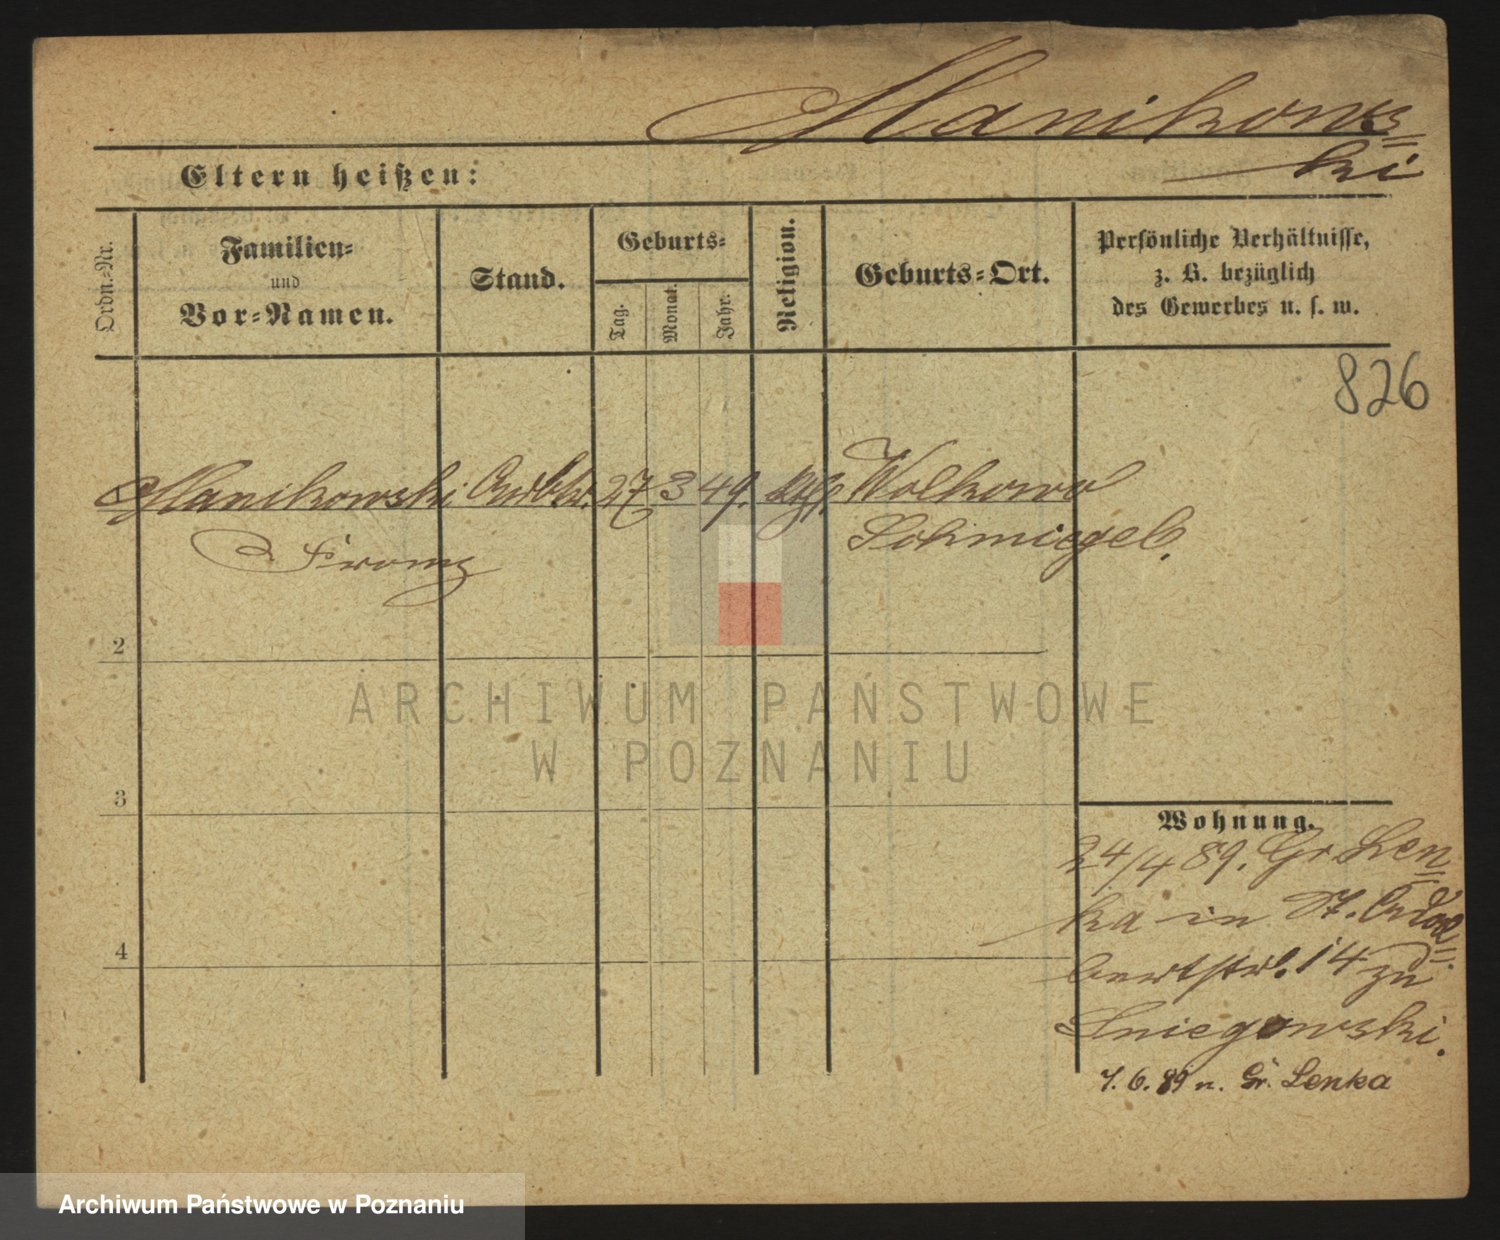 Manikows=
ki
Eltern heißen:
Ordn.-Nr.
Familien=
und
Vor=Namen.
Stand.
Geburts=
Tag.
Monat.
Jahr.
Religion.
Geburts=Ort.
Persönliche Verhältnisse,
z. B. bezüglich
des Gewerbes u. s. w.
826
Manikowski 27 3 49. Wolkowo
Franz Schmiegel.
2
3
4
ARCHIWUM PAŃSTWOWE
W POZNANIU
Wohnung.
24/4 89. Gr. Len=
ka in St. Adal=
bertstr. 14 zu
Sniegowski.
7. 6. 89 n. Gr. Lenka
Archiwum Państwowe w Poznaniu